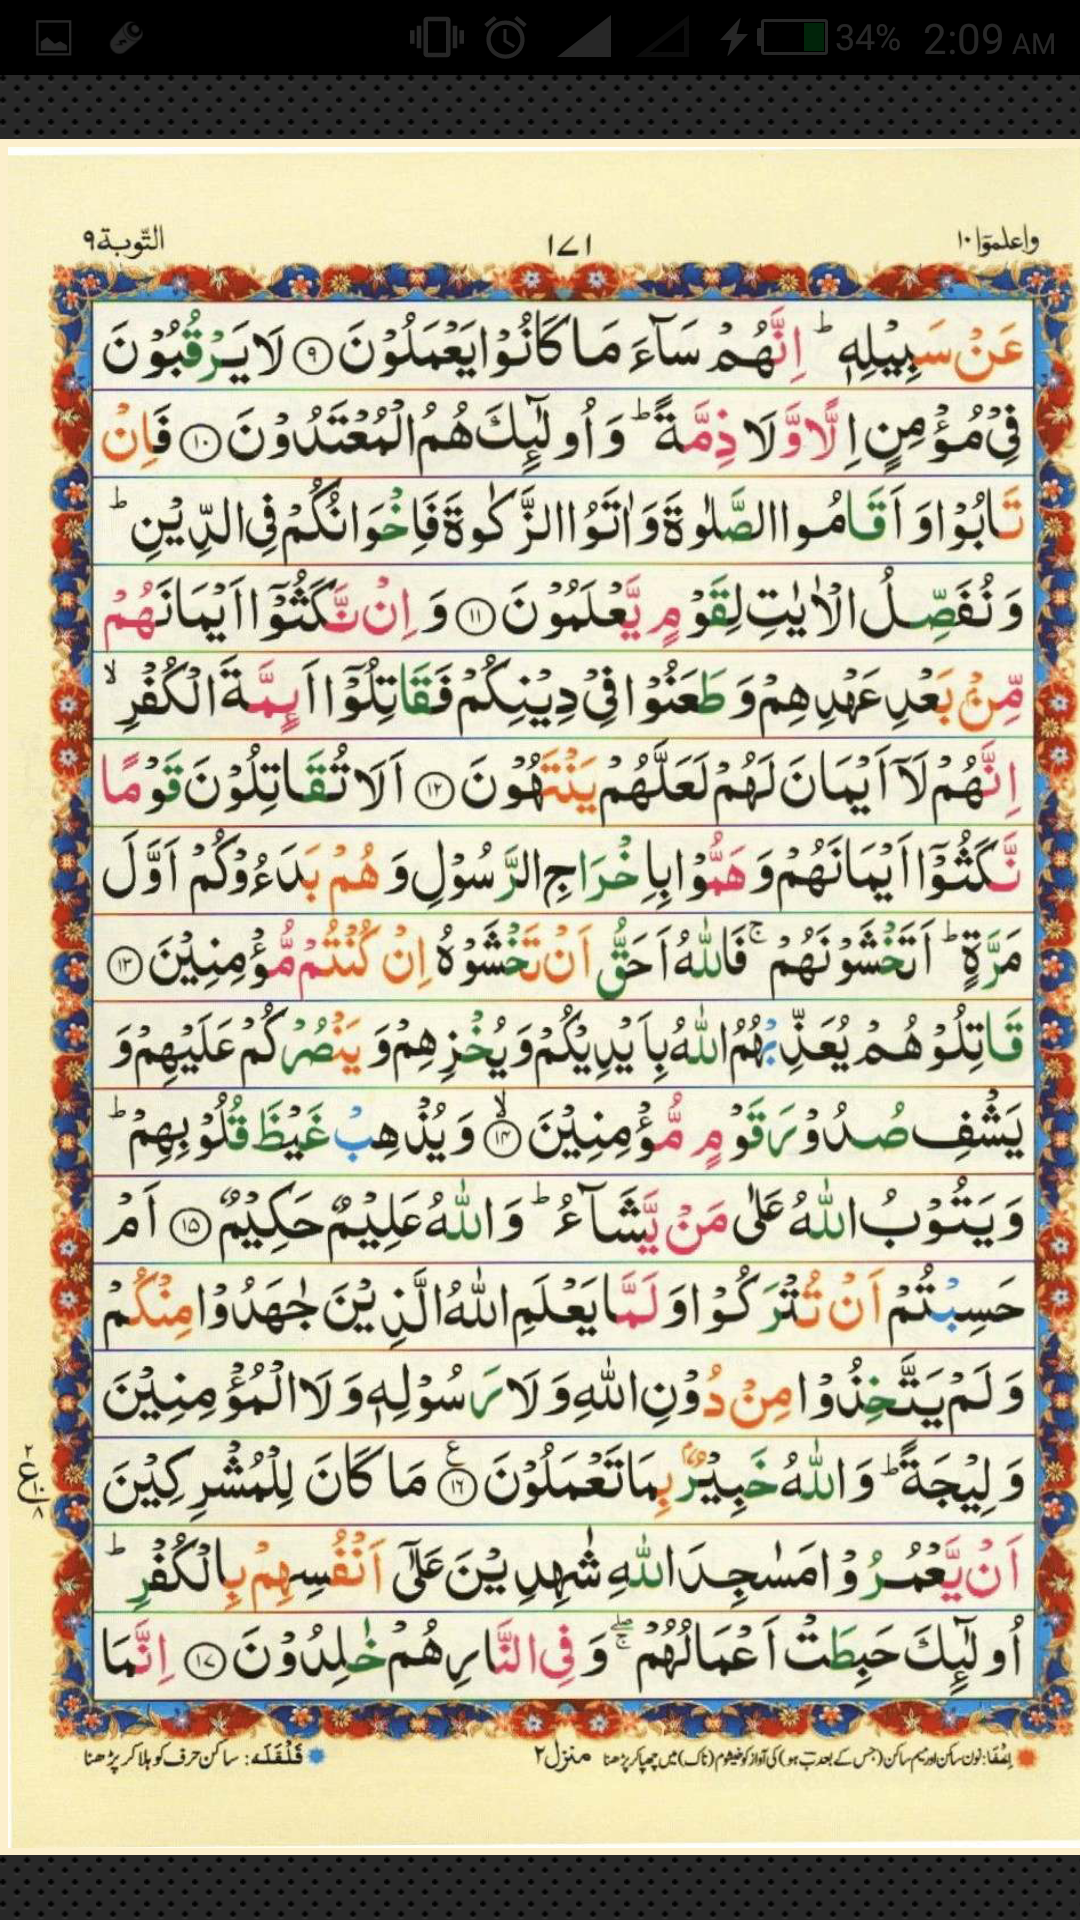 34% 2:09 AM
واعلموٓا ١٠ ١٧١ التّوبة ٩
عَنْ سَبِيْلِهٖ ؕ اِنَّهُمْ سَآءَ مَا كَانُوْا يَعْمَلُوْنَ ۹ لَا يَرْقُبُوْنَ
فِيْ مُؤْمِنٍ اِلًّا وَّلَا ذِمَّةً ؕ وَاُولٰٓئِكَ هُمُ الْمُعْتَدُوْنَ ۱۰ فَاِنْ
تَابُوْا وَاَقَامُوا الصَّلٰوةَ وَاٰتَوُا الزَّكٰوةَ فَاِخْوَانُكُمْ فِي الدِّيْنِ ؕ
وَنُفَصِّلُ الْاٰيٰتِ لِقَوْمٍ يَّعْلَمُوْنَ ۱۱ وَاِنْ نَّكَثُوْٓا اَيْمَانَهُمْ
مِّنْۢ بَعْدِ عَهْدِهِمْ وَطَعَنُوْا فِيْ دِيْنِكُمْ فَقَاتِلُوْٓا اَئِمَّةَ الْكُفْرِ ۙ
اِنَّهُمْ لَآ اَيْمَانَ لَهُمْ لَعَلَّهُمْ يَنْتَهُوْنَ ۱۲ اَلَا تُقَاتِلُوْنَ قَوْمًا
نَّكَثُوْٓا اَيْمَانَهُمْ وَهَمُّوْا بِاِخْرَاجِ الرَّسُوْلِ وَهُمْ بَدَءُوْكُمْ اَوَّلَ
مَرَّةٍ ؕ اَتَخْشَوْنَهُمْ ۚ فَاللّٰهُ اَحَقُّ اَنْ تَخْشَوْهُ اِنْ كُنْتُمْ مُّؤْمِنِيْنَ ۱۳
قَاتِلُوْهُمْ يُعَذِّبْهُمُ اللّٰهُ بِاَيْدِيْكُمْ وَيُخْزِهِمْ وَيَنْصُرْكُمْ عَلَيْهِمْ وَ
يَشْفِ صُدُوْرَ قَوْمٍ مُّؤْمِنِيْنَ ۙ ۱۴ وَيُذْهِبْ غَيْظَ قُلُوْبِهِمْ ؕ
وَيَتُوْبُ اللّٰهُ عَلٰى مَنْ يَّشَآءُ ؕ وَاللّٰهُ عَلِيْمٌ حَكِيْمٌ ۱۵ اَمْ
حَسِبْتُمْ اَنْ تُتْرَكُوْا وَلَمَّا يَعْلَمِ اللّٰهُ الَّذِيْنَ جٰهَدُوْا مِنْكُمْ
وَلَمْ يَتَّخِذُوْا مِنْ دُوْنِ اللّٰهِ وَلَا رَسُوْلِهٖ وَلَا الْمُؤْمِنِيْنَ
وَلِيْجَةً ؕ وَاللّٰهُ خَبِيْرٌۢ بِمَا تَعْمَلُوْنَ ۱۶ ع مَا كَانَ لِلْمُشْرِكِيْنَ
۲ ع ۱۰ ۸
اَنْ يَّعْمُرُوْا مَسٰجِدَ اللّٰهِ شٰهِدِيْنَ عَلٰٓى اَنْفُسِهِمْ بِالْكُفْرِ ؕ
اُولٰٓئِكَ حَبِطَتْ اَعْمَالُهُمْ ۖۚ وَفِي النَّارِ هُمْ خٰلِدُوْنَ ۱۷ اِنَّمَا
اِخفَا: نون ساکن اور میم ساکن (جس کے بعد ب ہو) کی آواز کو خیشوم (ناک) میں چھپا کر پڑھنا منزل ۲ قَلْقَلَه: ساکن حرف کو ہلا کر پڑھنا